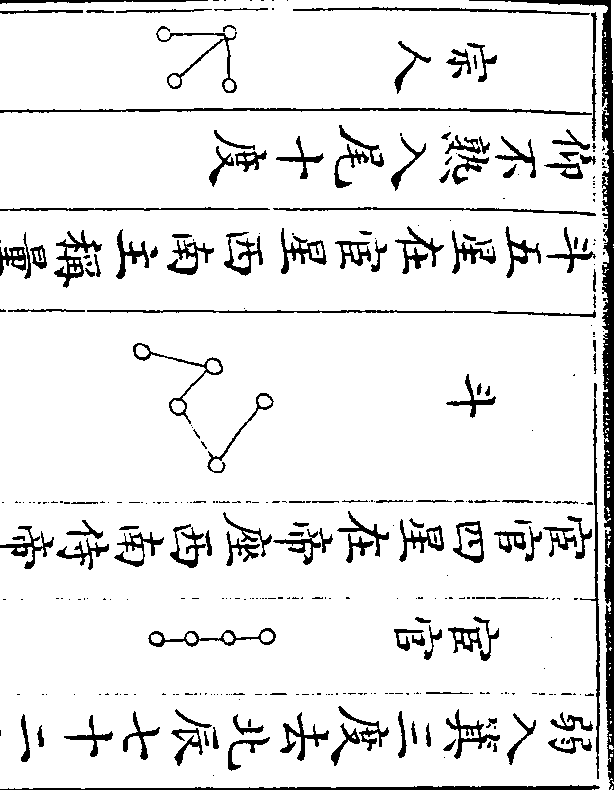 弱入箕三度去北辰七十二
宦官
宦官四星在帝座西南侍帝
斗
斗五星在宦星西南主稱量
仰不熟入尾十度
宗人